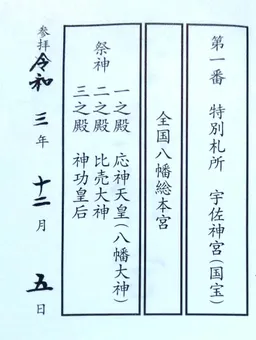 第一番　特別札所　宇佐神宮(国宝)
全国八幡総本宮
祭神
一之殿　応神天皇(八幡大神)
二之殿　比売大神
三之殿　神功皇后
参拝 令和 三 年 十二 月 五 日